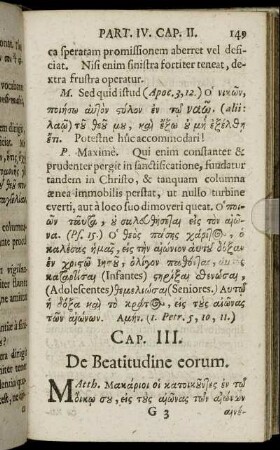 PART. IV. CAP. II. 149
ea speratam promissionem aberret vel defi-
ciat. Nisi enim sinistra fortiter teneat, dex-
tra frustra operatur.
M. Sed quid istud (Apoc. 3, 12.) Ὁ νικῶν,
ποιήσω αὐτὸν στύλον ἐν τῷ ναῷ (alii:
λαῷ) τοῦ θεοῦ μου, καὶ ἔξω οὐ μὴ ἐξέλθῃ
ἔτι. Potestne huc accommodari?
P. Maximè. Qui enim constanter &
prudenter pergit in sanctificatione, fundatur
tandem in Christo, & tanquam columna
ænea immobilis perstat, ut nullo turbine
everti, aut à loco suo dimoveri queat. Ὁ ποι-
ῶν ταῦτα, οὐ σαλευθήσεται εἰς τὸν αἰῶ-
να. (Ps. 15.) Ὁ θεὸς πάσης χάριτος, ὁ
καλέσας ἡμᾶς, εἰς τὴν αἰώνιον αὐτοῦ δόξαν
ἐν χριστῷ Ἰησοῦ, ὀλίγον παθόντας,
καταρτίσαι (Infantes) στηρίξαι σθενώσαι,
(Adolescentes) θεμελιώσαι (Seniores.) Αὐτῷ
ἡ δόξα καὶ τὸ κράτος, εἰς τοὺς αἰῶνας
τῶν αἰώνων. Ἀμήν. (1. Petr. 5, 10, 11.)
CAP. III.
De Beatitudine eorum.
Matth. Μακάριοι οἱ κατοικοῦντες ἐν τῷ
οἴκῳ σου, εἰς τοὺς αἰῶνας τῶν αἰώνων
G 3